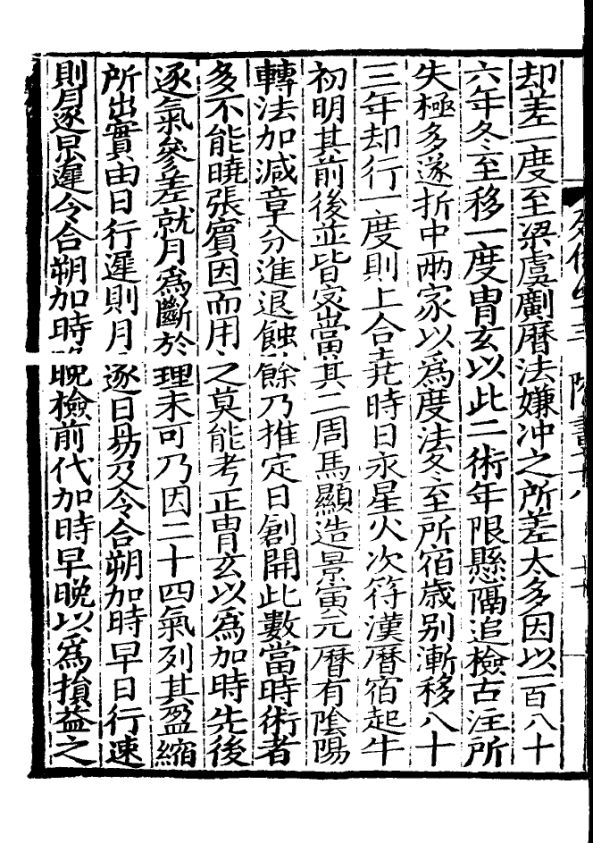 却差一度至梁虞劆曆法嫌冲之所差太多因以一百八十
六年冬至移一度胄玄以此二術年限懸隔追檢古注所
失極多遂折中兩家以爲度法冬至所宿歳别漸移八十
三年却行一度則上合堯時日永星火次符漢曆宿起牛
初明其前後並皆宻當其二周馬顯造景寅元曆有隂陽
轉法加减章分進退蝕餘乃推定日創開此數當時術者
多不能曉張賔因而用之莫能考正胄玄以爲加時先後
逐氣參差就月爲斷於理未可乃因二十四氣列其盈縮
所出實由日行遲則月逐日昜及令合朔加時早日行速
則月逐日遲令合朔加時晚檢前代加時早晚以爲損益之